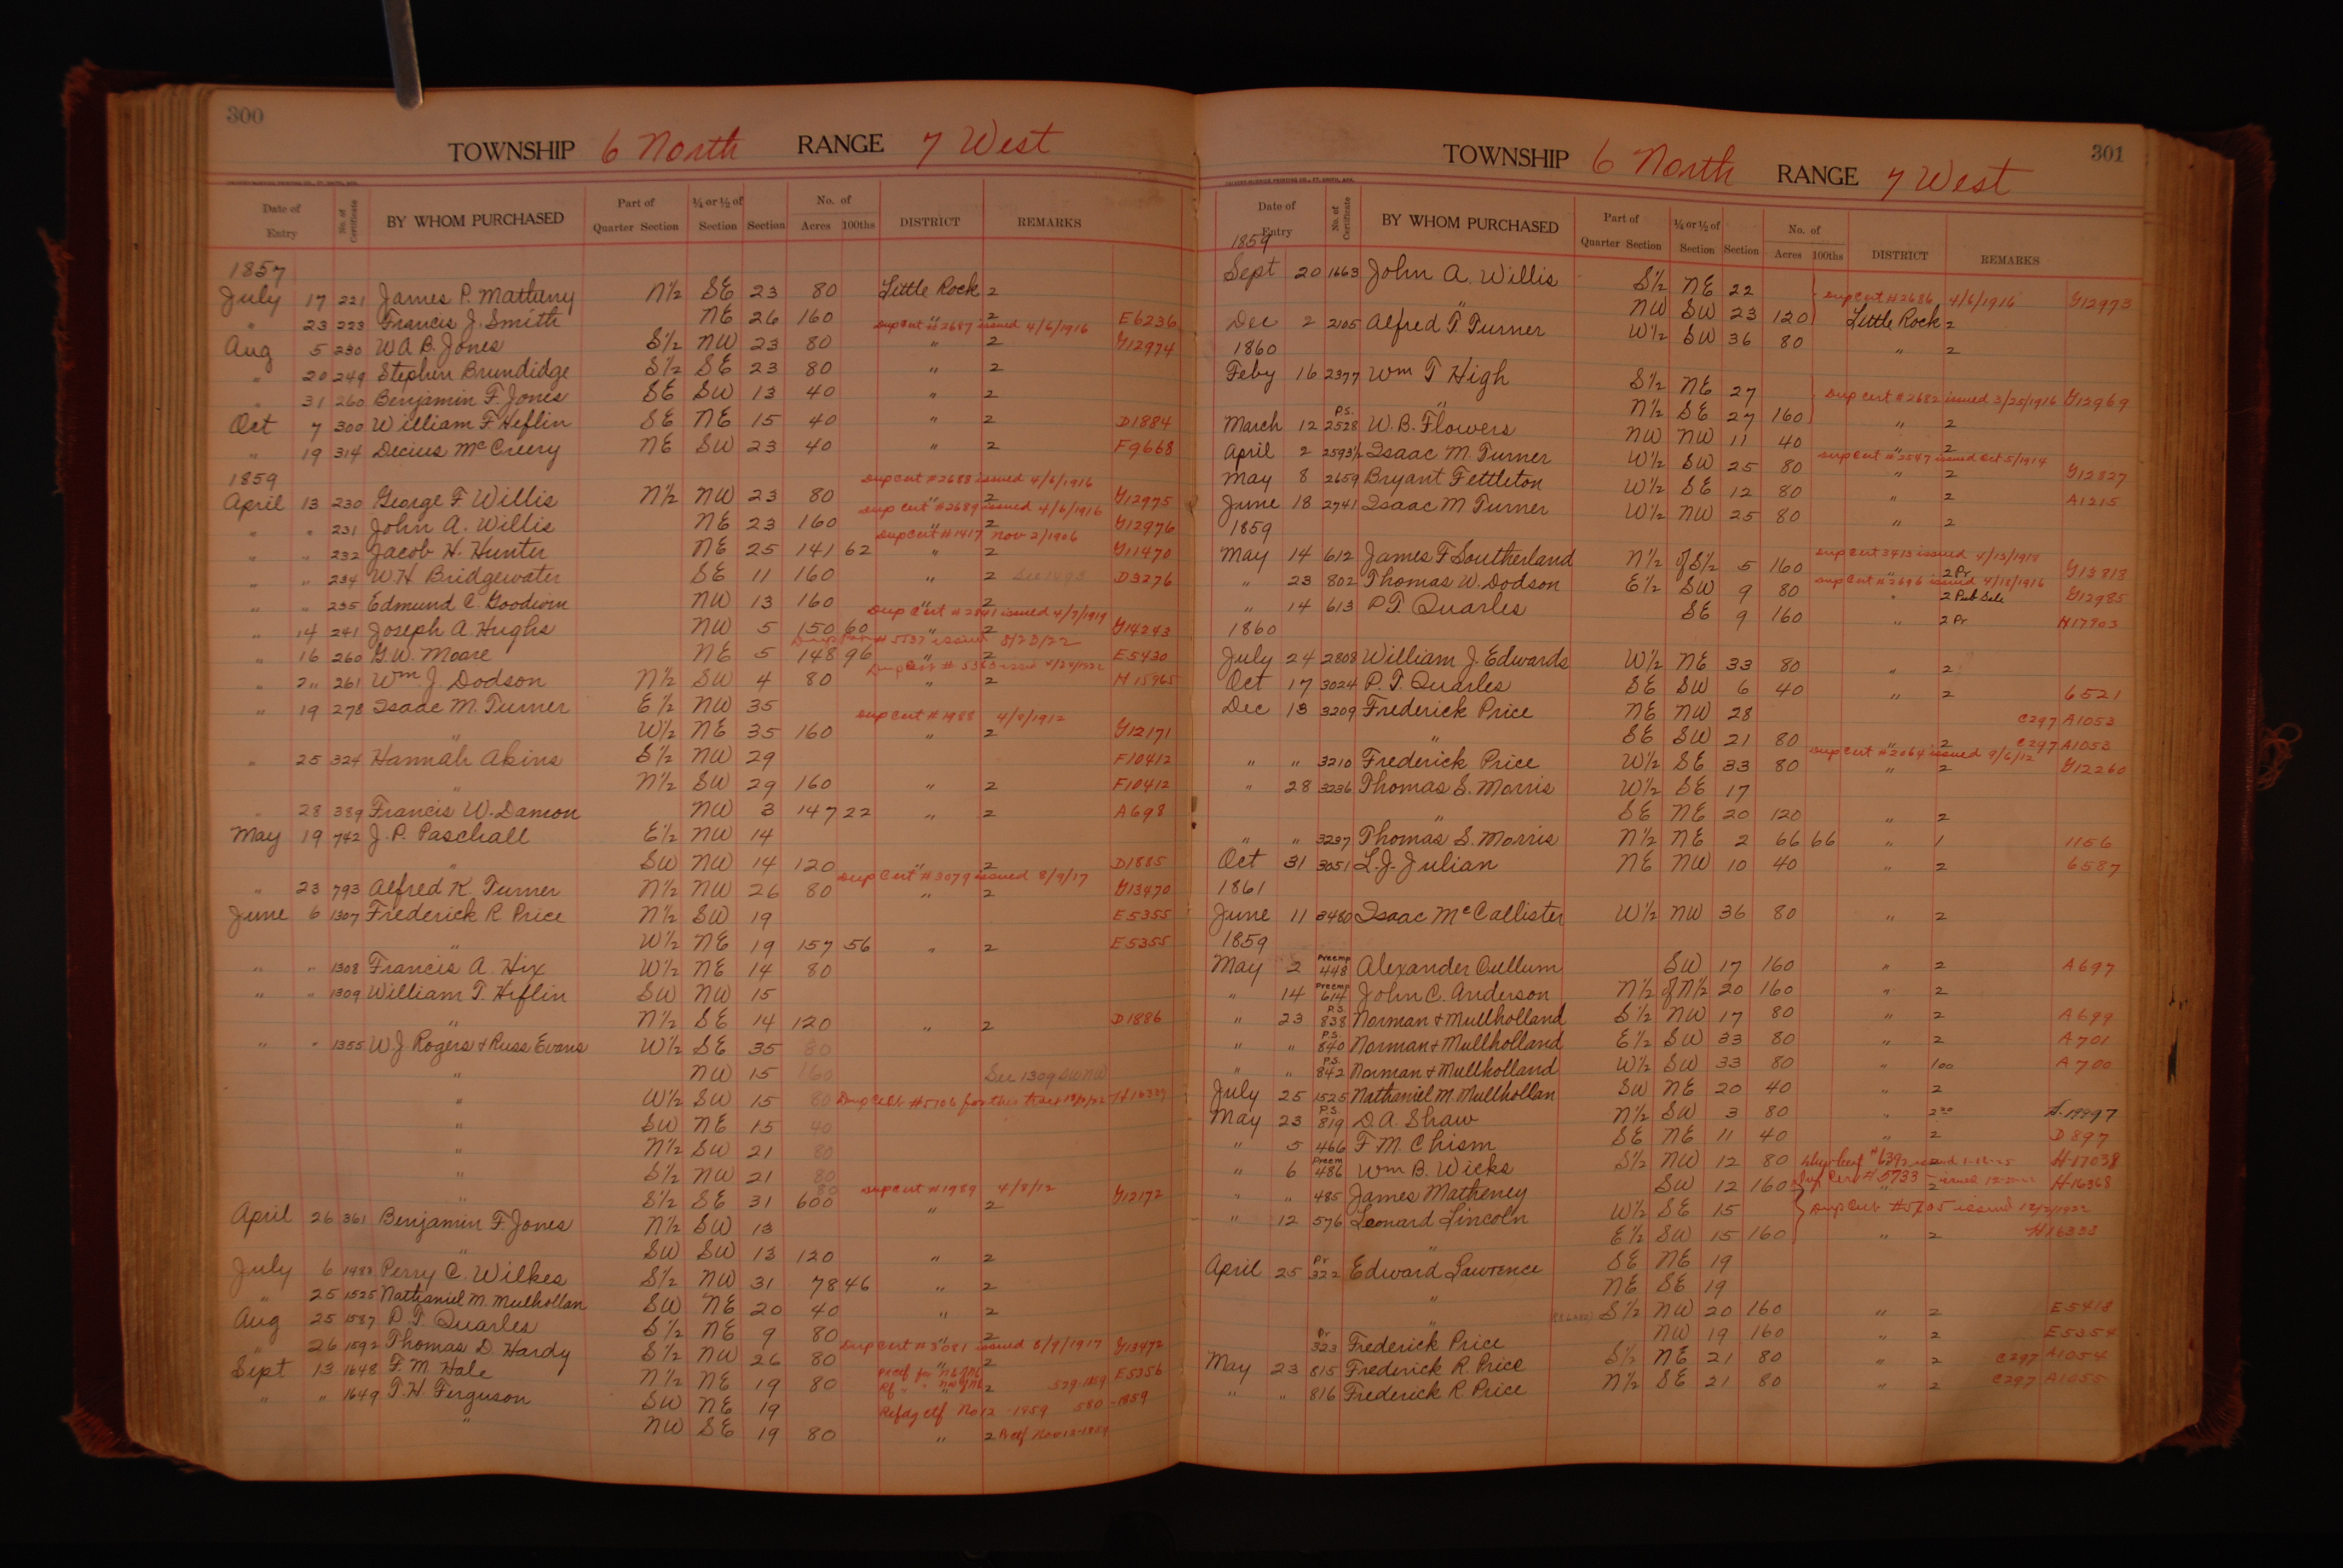 300
TOWNSHIP 6 North RANGE 7 West
Date of Entry No. of Certificate BY WHOM PURCHASED Part of Quarter Section ¼ or ½ of Section Section No. of Acres 100ths DISTRICT REMARKS
1857
July 17 221 James P. Matheny N½ SE 23 80 Little Rock 2
" 23 223 Francis J. Smith NE 26 160 " 2 E6236
Dup Cert #2687 issued 4/6/1916
Aug 5 230 W.A.B. Jones S½ NW 23 80 " 2 G12974
" 20 249 Stephen Brundidge S½ SE 23 80 " 2
" 31 260 Benjamin F. Jones SE SW 13 40 " 2
Oct 7 300 William F Heflin SE NE 15 40 " 2 D1884
" 19 314 Decius McCreery NE SW 23 40 " 2 F9668
1859
Dup Cert #2688 issued 4/6/1916
April 13 230 George F. Willis N½ NW 23 80 " 2 G12975
Dup Cert #2689 issued 4/6/1916
" " 231 John A. Willis NE 23 160 " 2 G12976
Dup Cert #1417 Nov 2/1906
" " 232 Jacob H. Hunter NE 25 141 62 " 2 G11470
" " 234 W.H. Bridgewater SE 11 160 " 2 D3276
" " 235 Edmund C. Goodwin NW 13 160 " 2
Dup Cert #2841 issued 4/7/1919
" 14 241 Joseph A. Hughs NW 5 150 60 " 2 G14243
" 16 260 G.W. Moore NE 5 148 96 " 2 E5430
" 2" 261 Wm. J. Dodson N½ SW 4 80 " 2 H15965
" 19 278 Isaac M. Turner E½ NW 35
Dup Cert #1988 4/8/1912
" W½ NE 35 160 " 2 G12171
" 25 324 Hannah Akins S½ NW 29 F10412
" N½ SW 29 160 " 2 F10412
" 28 389 Francis W. Damon NW 3 147 22 " 2 A698
May 19 742 J.P. Paschall E½ NW 14
" SW NW 14 120 " 2 D1885
Dup Cert #3079 issued 8/9/17
" 23 793 Alfred K. Turner N½ NW 26 80 " 2 G13470
June 6 1307 Frederick R Price N½ SW 19 E5355
" W½ NE 19 157 56 " 2 E5355
" " 1308 Francis A. Hix W½ NE 14 80
" " 1309 William T. Heflin SW NW 15
" N½ SE 14 120 " 2 D1886
" " 1355 W J Rogers & Russ Evans W½ SE 35 80
" NW 15 160 See 1309 SW NW
" W½ SW 15 80
" SW NE 15 40
" N½ SW 21 80
" S½ NW 21 80
Dup Cert #1989 4/8/12
" S½ SE 31 600 " 2 G12172
April 26 361 Benjamin F Jones N½ SW 13
" SW SW 13 120 " 2
July 6 1488 Perry C. Wilkes S½ NW 31 78 46 " 2
" 25 1525 Nathaniel M. Mulhollan SW NE 20 40 " 2
Aug 25 1587 P.T. Quarles S½ NE 9 80 " 2
Dup Cert #3081 issued 8/9/1917
" 26 1592 Thomas D. Hardy S½ NW 26 80 " 2 G13472
Sept 13 1648 F.M. Hale N½ NE 19 80 " 2 579-1859 E5356
" " 1649 T.H. Ferguson SW NE 19 580-1859
" NW SE 19 80 " 2
301
TOWNSHIP 6 North RANGE 7 West
Date of Entry No. of Certificate BY WHOM PURCHASED Part of Quarter Section ¼ or ½ of Section Section No. of Acres 100ths DISTRICT REMARKS
1859
Sept 20 1663 John A. Willis S½ NE 22
Dup Cert #2686 4/6/1916 G12973
" NW SW 23 120 Little Rock 2
Dec 2 2105 Alfred T. Turner W½ SW 36 80 " 2
1860
Feby 16 2377 Wm T High S½ NE 27
Dup Cert #2682 issued 3/25/1916 G12969
" N½ SE 27 160 " 2
March 12 P.S. 2528 W.B. Flowers NW NW 11 40 " 2
Dup Cert #2547 issued Oct 5/1914
April 2 2593½ Isaac M. Turner W½ SW 25 80 " 2 G12827
May 8 2659 Bryant Fettleton W½ SE 12 80 " 2 A1215
June 18 2741 Isaac M Turner W½ NW 25 80 " 2
1859
Dup Cert 3413 issued 4/13/1918
May 14 612 James F Southerland N½ of S½ 5 160 " 2 Pr G13818
Dup Cert #2696 issued 4/18/1916
" 23 802 Thomas W. Dodson E½ SW 9 80 " 2 Pub Sale G12985
" 14 613 P.T. Quarles SE 9 160 " 2 Pr H17903
1860
July 24 2808 William J. Edwards W½ NE 33 80 " 2
Oct 17 3024 P.T. Quarles SE SW 6 40 " 2 6521
Dec 13 3209 Frederick Price NE NW 28 C297 A1053
" SE SW 21 80 " 2 C297 A1053
Dup Cert #2064 issued 9/6/12
" " 3210 Frederick Price W½ SE 33 80 " 2 G12260
" 28 3236 Thomas S. Morris W½ SE 17
" SE NE 20 120 " 2
" " 3237 Thomas S. Morris N½ NE 2 66 66 " 1 1156
Oct 31 3051 L.J. Julian NE NW 10 40 " 2 6587
1861
June 11 3480 Isaac McCallister W½ NW 36 80 " 2
1859
May 2 Preemp 448 Alexander Cullum SW 17 160 " 2 A697
" 14 Preemp 614 John C. Anderson N½ of N½ 20 160 " 2
" 23 P.S. 838 Norman & Mullholland S½ NW 17 80 " 2 A699
" " P.S. 840 Norman & Mullholland E½ SW 33 80 " 2 A701
" " P.S. 842 Norman & Mullholland W½ SW 33 80 " 100 A700
July 25 1525 Nathaniel M. Mullhollan SW NE 20 40 " 2
May 23 P.S. 819 D.A. Shaw N½ SW 3 80 "
" 5 466 F.M. Chism SE NE 11 40 " 2 D897
" 6 Preem 486 Wm B. Wicks S½ NW 12 80 2 H-17038
" " 485 James Matheney SW 12 160 " 2 H-16368
" 12 576 Leonard Lincoln W½ SE 15
Dup Cert #5705 issued 12/2/1922
" E½ SW 15 160 " 2 H16338
April 25 Pr 322 Edward Lawrence SE NE 19
" NE SE 19
" S½ NW 20 160 " 2 E5418
Pr 323 Frederick Price NW 19 160 " 2 E5354
May 23 815 Frederick R. Price S½ NE 21 80 " 2 C297 A1054
" " 816 Frederick R. Price N½ SE 21 80 " 2 C297 A1055